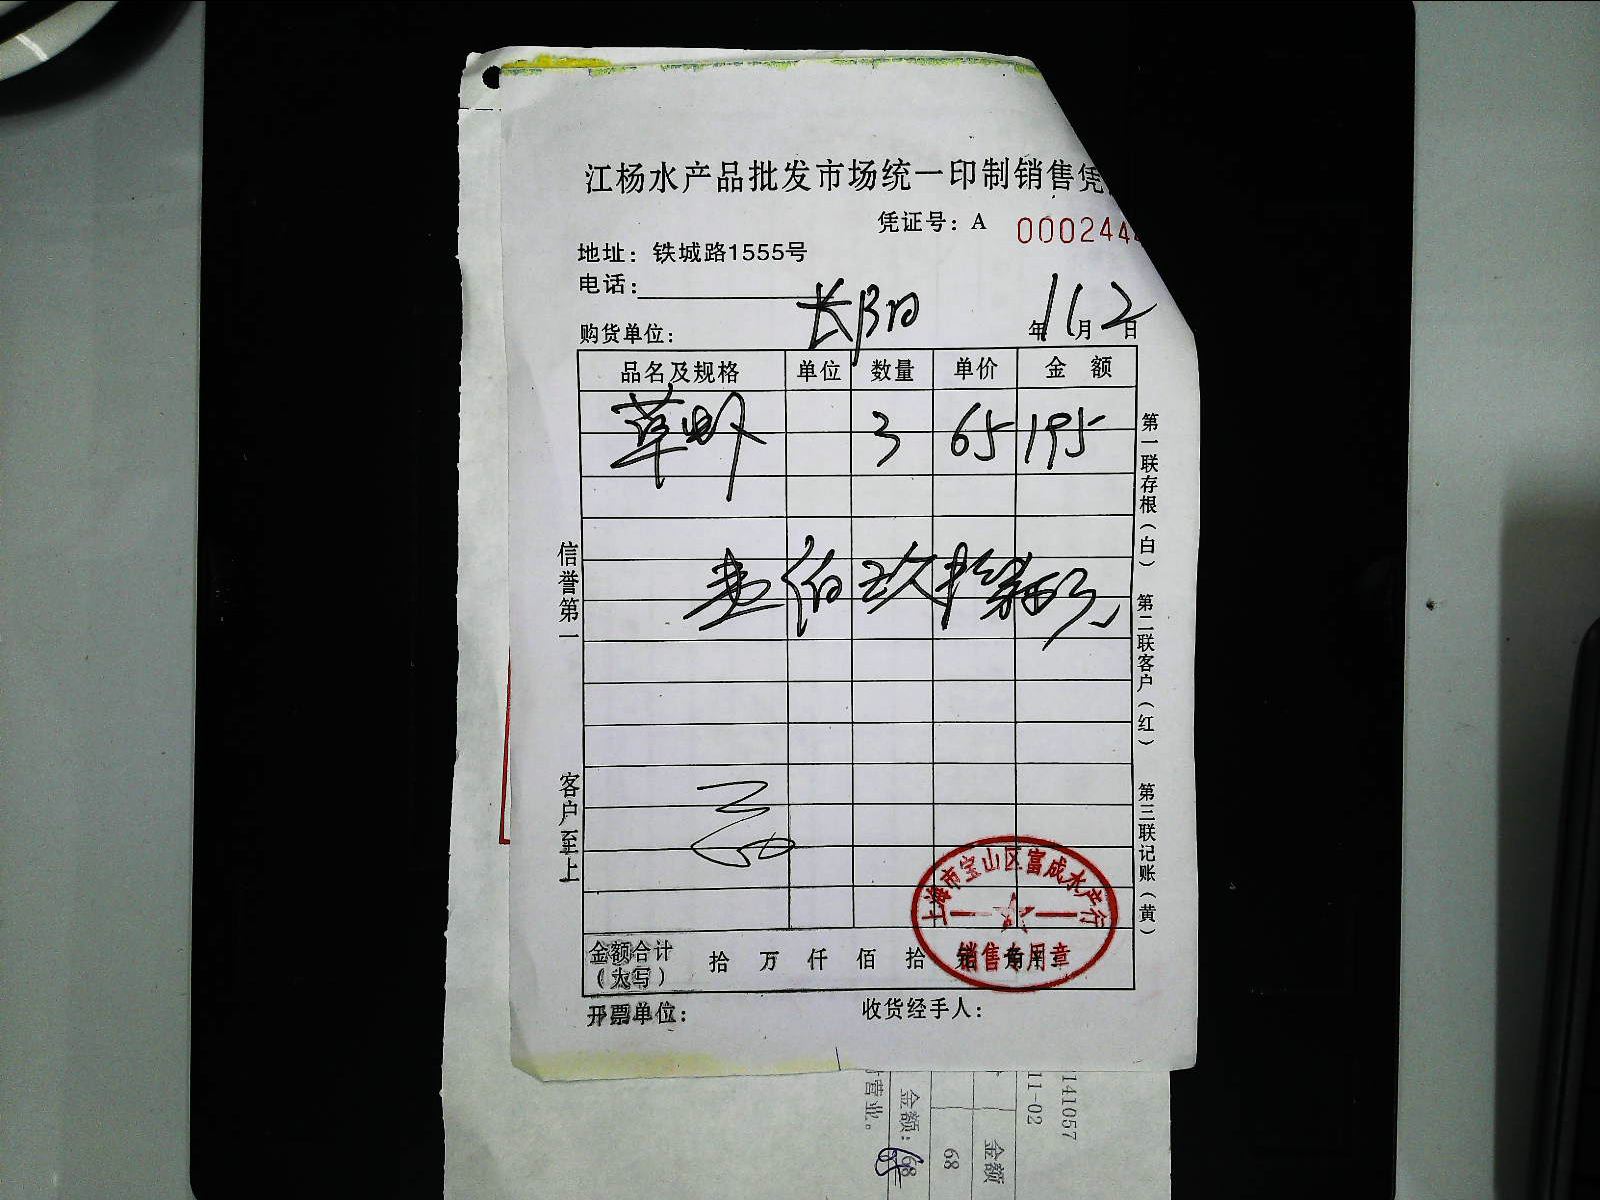 江杨水产品批发市场统一印制销售凭
凭证号：A 000244
地址：铁城路1555号
电话：
购货单位： 长阳 年11月2日
品名及规格 单位 数量 单价 金额
草虾 3 65 195
壹佰玖拾伍元
金额合计（大写） 拾 万 仟 佰 拾 元 角
开票单位： 收货经手人：
信誉第一
客户至上
第一联存根（白） 第二联客户（红） 第三联记账（黄）
上海市宝山区富成水产行
销售专用章
营业。
金额：68
68
金额
11-02
141057